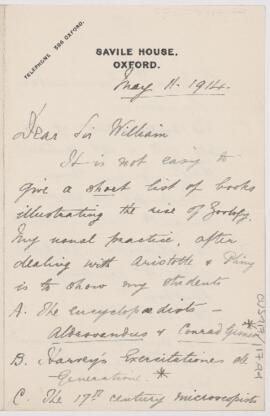 TELEPHONE 596 OXFORD.
SAVILE HOUSE,
OXFORD.
May 11. 1914.
Dear Sir William
It is not easy to
give a short list of books
illustrating the rise of Zoology.
My usual practice, after
dealing with Aristotle & Pliny
is to show my students
A. The encyclopædists -
Aldrovandus & Conrad Gesner*
B. Harvey's Exercitationes de
Generatione. *
C. The 17th century microscopists